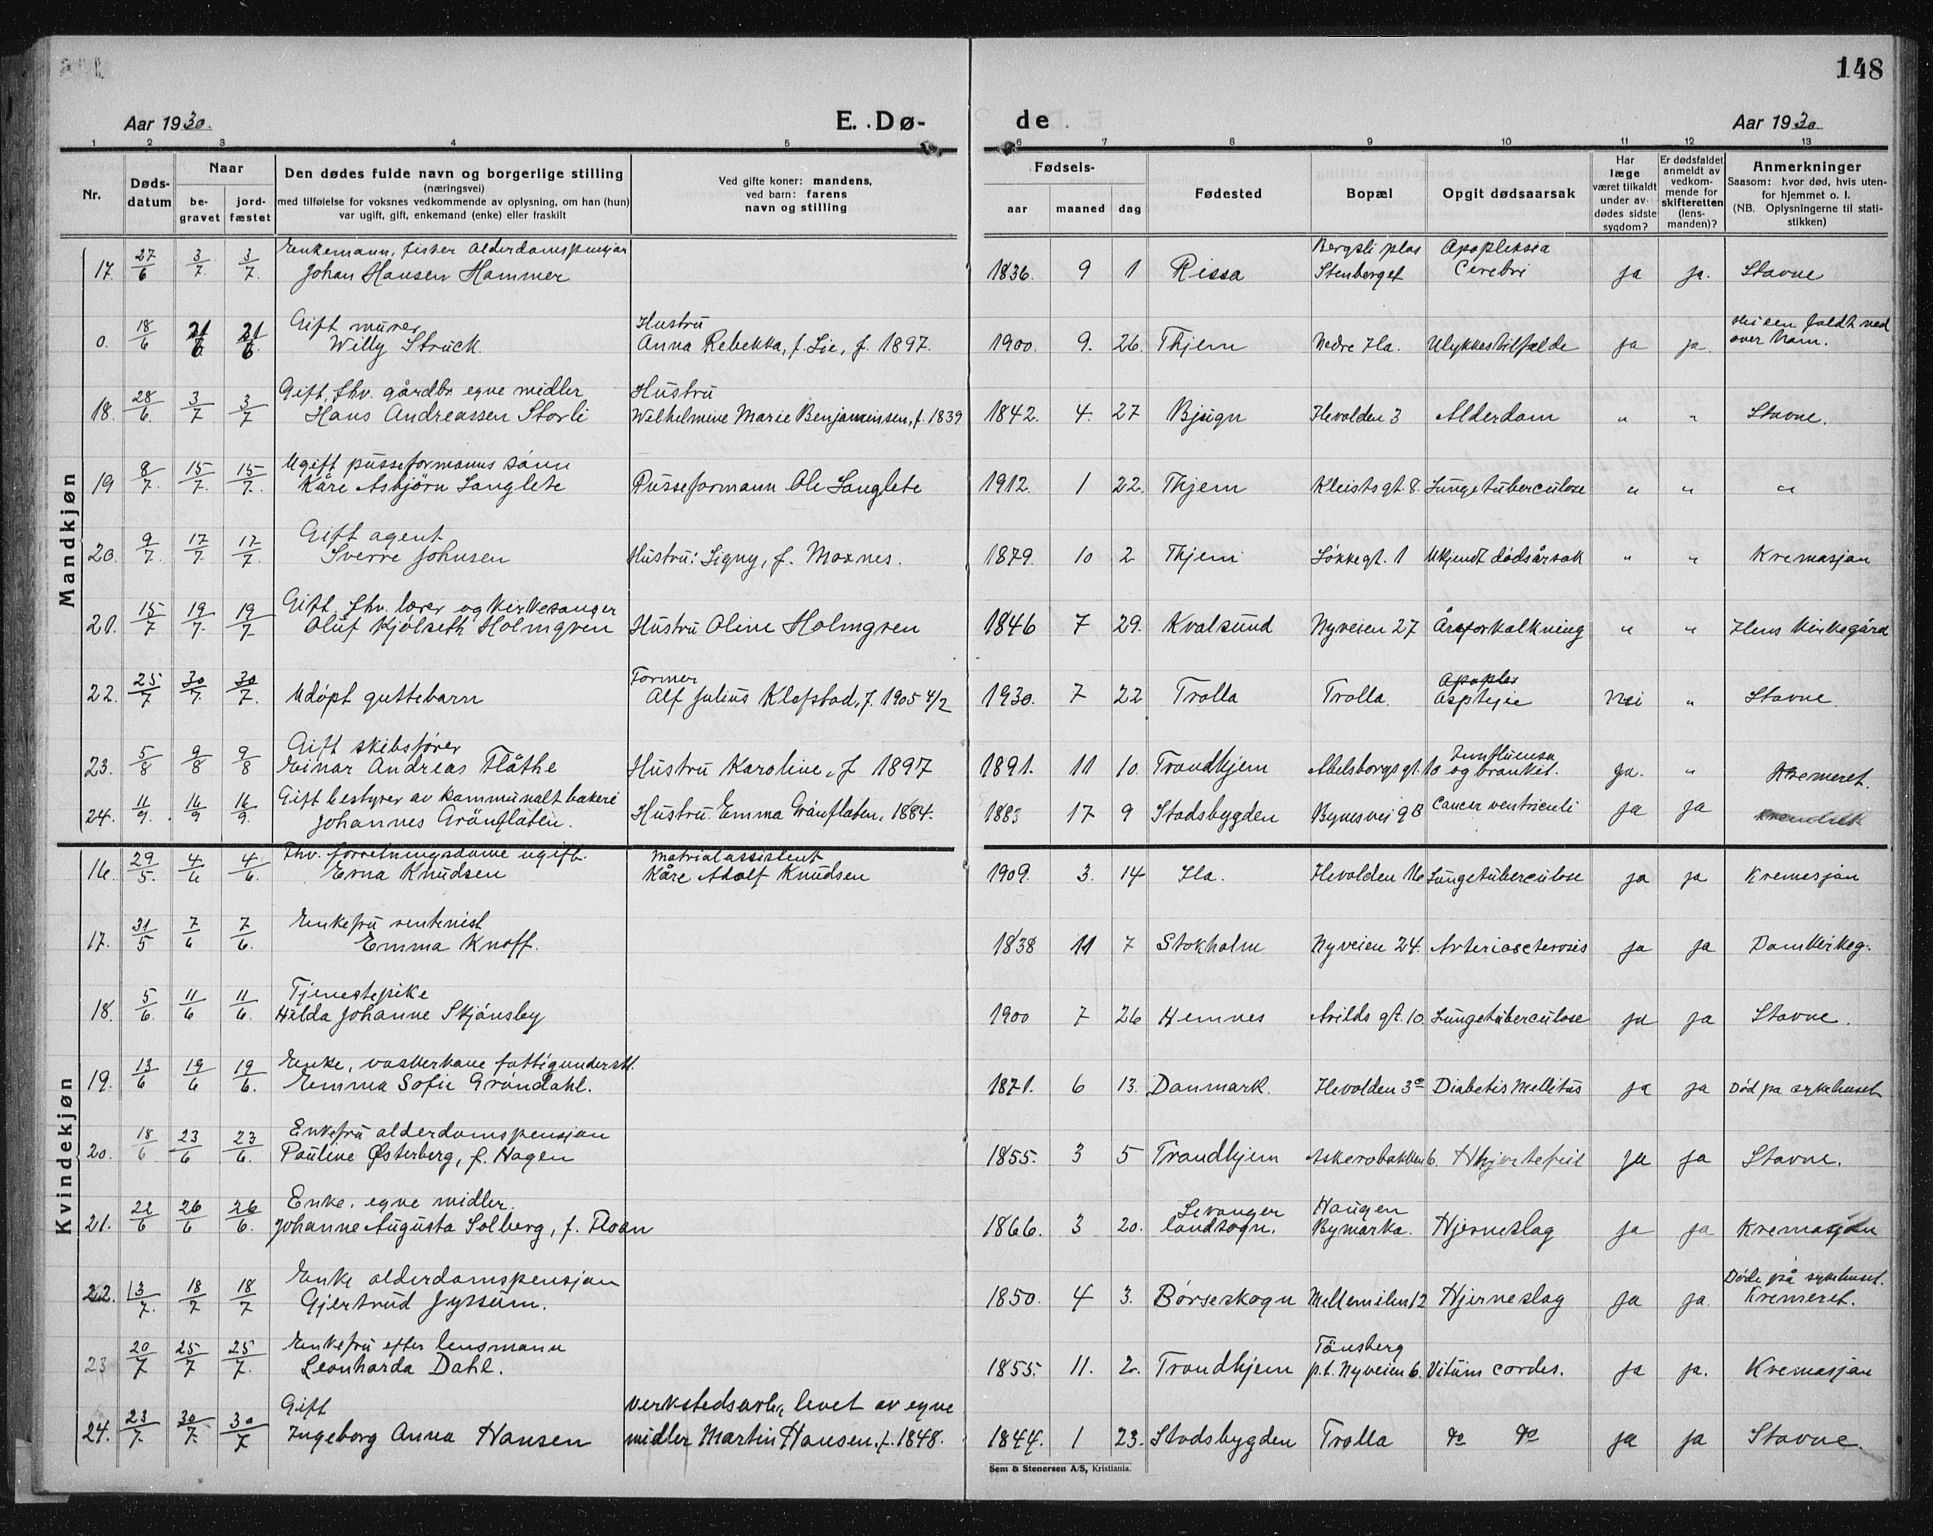 148
Aar 1930.
E. Dø-
de
Aar 1930
1 2 3 4 5 6 7 8 9 10 11 12 13
Nr.
Døds-
datum
Naar
be-
gravet
jord-
fæstet
Den dødes fulde navn og borgerlige stilling
(næringsvei)
med tilføielse for voksnes vedkommende av oplysning, om han (hun)
var ugift, gift, enkemand (enke) eller fraskilt
Ved gifte koner: mandens,
ved barn: farens
navn og stilling
Fødsels-
aar maaned dag
Fødested
Bopæl
Opgit dødsaarsak
Har
læge
været tilkaldt
under av-
dødes sidste
sygdom?
Er dødsfaldet
anmeldt av
vedkom-
mende for
skifteretten
(lens-
manden)?
Anmerkninger
Saasom: hvor død, hvis uten-
for hjemmet o. l.
(NB. Oplysningerne til stati-
stikken)
Mandkjøn
Enkemann, fisker Alderdomspensjon Bergsli plas Apopleksia
17. 27/6 3/7. 3/7. Johan Hansen Hammer 1836. 9 1 Rissa Stenberget Cerebri ja ja. Stavne
Gift murer Hustru faldt ned
0. 18/6 21/6 21/6 Willy Struck. Anna Rebekka, f. Lie, f. 1897. 1900. 9. 26. Thjem Nedre Ila. Ulykkestilfælde ja ja. over ham.
Gift, fhv. gårdbr. egne midler Hustru
18. 28/6. 3/7 3/7 Hans Andreassen Storli Wilhelmine Marie Benjaminsen, f. 1839 1842. 4. 27 Bjugn Hevolden 3 Alderdom " " Stavne.
Ugift pusseformanns sønn
19 8/7. 15/7. 15/7. Kåre Asbjørn Langlete Pusseformann Ole Langlete 1912. 1 22. Thjem Kleistsgt. 8. Lungetuberculose " " "
Gift agent
20. 9/7. 17/7. 17/7. Sverre Johnsen Hustru: Signy, f. Moxnes. 1879. 10 2 Thjem Løkkegt. 1 Ukjendt dødsårsak " " Kremasjon
Gift, fhv. lærer og kirkesanger
21. 15/7 19/7. 19/7 Oluf Kjølseth Holmgren Hustru Oline Holmgren 1846 7 29. Kvalsund Nyveien 27 Åreforkalkning " " Ilens kirkegård
Former Apoplex
22. 25/7 30/7. 30/7. Udøpt guttebarn Alf Julius Klefstad, f. 1905 4/2 1930. 7 22 Trolla Trolla. Asphyxie Nei " Stavne.
Gift skibsfører Influensa
23. 5/8 9/8 9/8 Einar Andreas Flåthe Hustru Karoline, f 1897 1891. 11 10. Trondhjem Abelsborgs gt. 10 og bronkit. ja. " Kremeret.
Gift bestyrer av kommunalt bakeri
24. 11/9. 16/9 16/9. Johannes Grønflaten. Hustru Emma Grønflaten, 1884. 1883 17 9 Stadsbygden Bynesvei 9B Cancer ventriculi ja ja
Kvindekjøn
Fhv. forretningsdame ugift. Matrialassistent
16. 29/5. 4/6 4/6. Erna Knudsen Kåre Adolf Knudsen 1909. 3. 14 Ila. Hevolden 16 Lungetuberculose ja ja Kremasjon
Enkefru rentenist
17. 31/5 7/6 7/6. Emma Knoff. 1838 11 7 Stokholm Nyveien 24. Arteriosclerosis ja ja Domkirkeg.
Tjenestepike
18. 5/6. 11/6 11/6 Hilda Johanne Skjønsby 1900 7 26 Hemnes Arilds gt. 10 Lungetuberculose ja ja Stavne.
Enke, vaskerkone fattigunderst.
19. 13/6 19/6 19/6. Emma Sofie Grøndahl. 1871. 6 13. Danmark. Hevolden 3a Diabetis Mellitus ja ja Død på sykehuset
Enkefru alderdomspensjon
20. 18/6 23/6 23/6. Pauline Østerberg, f. Hagen 1855. 3 5 Trondhjem Askerobakken 6. Hjertefeil ja ja Stavne.
Enke, egne midler. Levanger Haugen
21. 22/6 26/6 26/6. Johanne Augusta Solberg, f. Floan 1866. 3 20. landsogn. Bymarka. Hjerneslag ja ja Kremasjon
Enke alderdomspensjon Døde på sykehuset.
22. 13/7. 18/7 18/7 Gjertrud Jyssum. 1850. 4 3. Børseskogn Mellemilen 12 Hjerneslag ja ja. Kremeret.
Enkefru efter lensmann Tønsberg
23 20/7 25/7 25/7. Leonharda Dahl. 1855. 11. 2. Trondhjem p.t. Nyveien 6. Vitium cordis. ja ja. Kremasjon
Gift verkstedsarb., levet av egne
24. 23/7 30/7. 30/7 Ingeborg Anna Hansen midler Martin Hansen, f. 1848. 1844. 1 23. Stadsbygden Trolla do do ja ja Stavne.
Sem & Stenersen A/S, Kristiania.